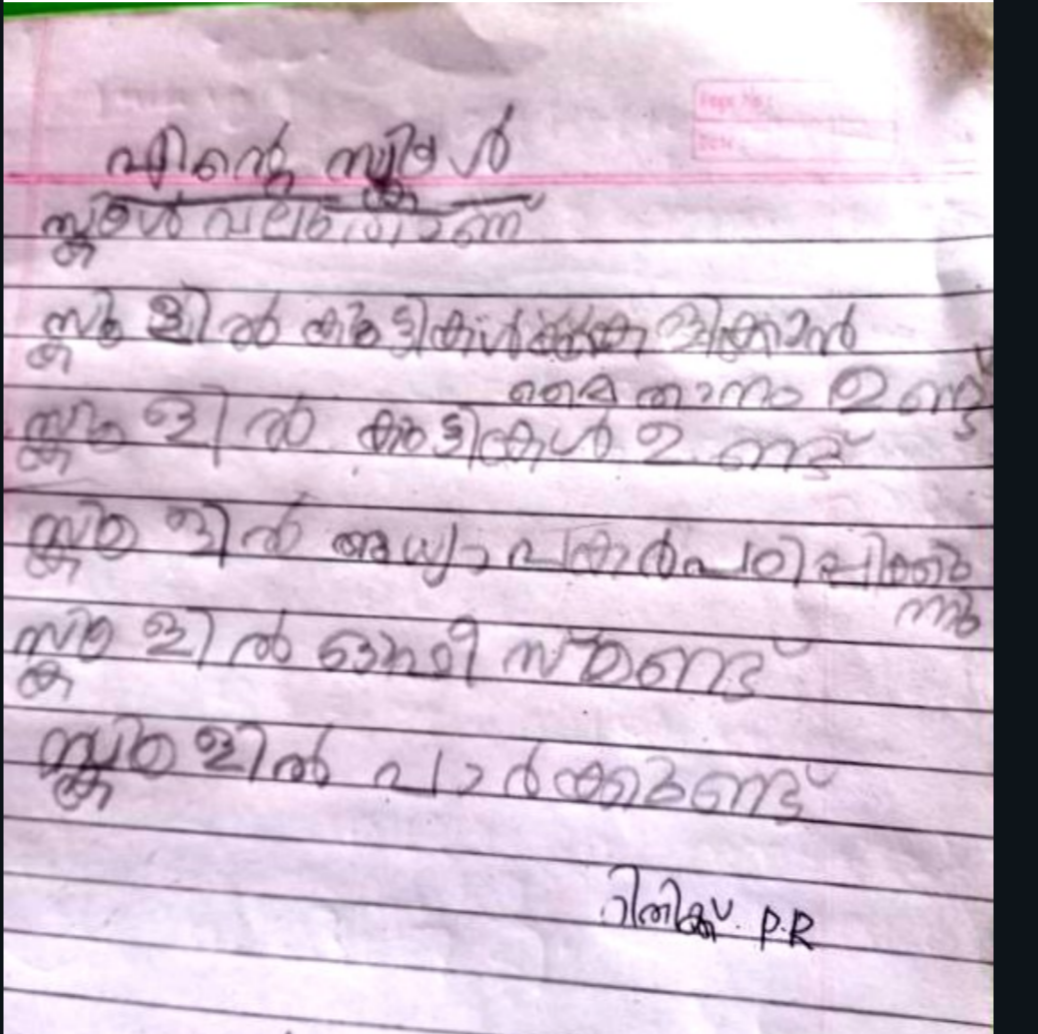 Page No.:
Date:
എന്റെ സ്കൂൾ
സ്കൂൾ വലുതാണ്
സ്കൂളിൽ കുട്ടികൾക്ക് കളിക്കാൻ
മൈതാനം ഉണ്ട്
സ്കൂളിൽ കുട്ടികൾ ഉണ്ട്
സ്കൂളിൽ അധ്യാപകർ പഠിപ്പിക്കു
ന്നു
സ്കൂളിൽ ഓഫീസ്ഉണ്ട്
സ്കൂളിൽ പാർക്കുണ്ട്
റിതിക്ക്. P.R